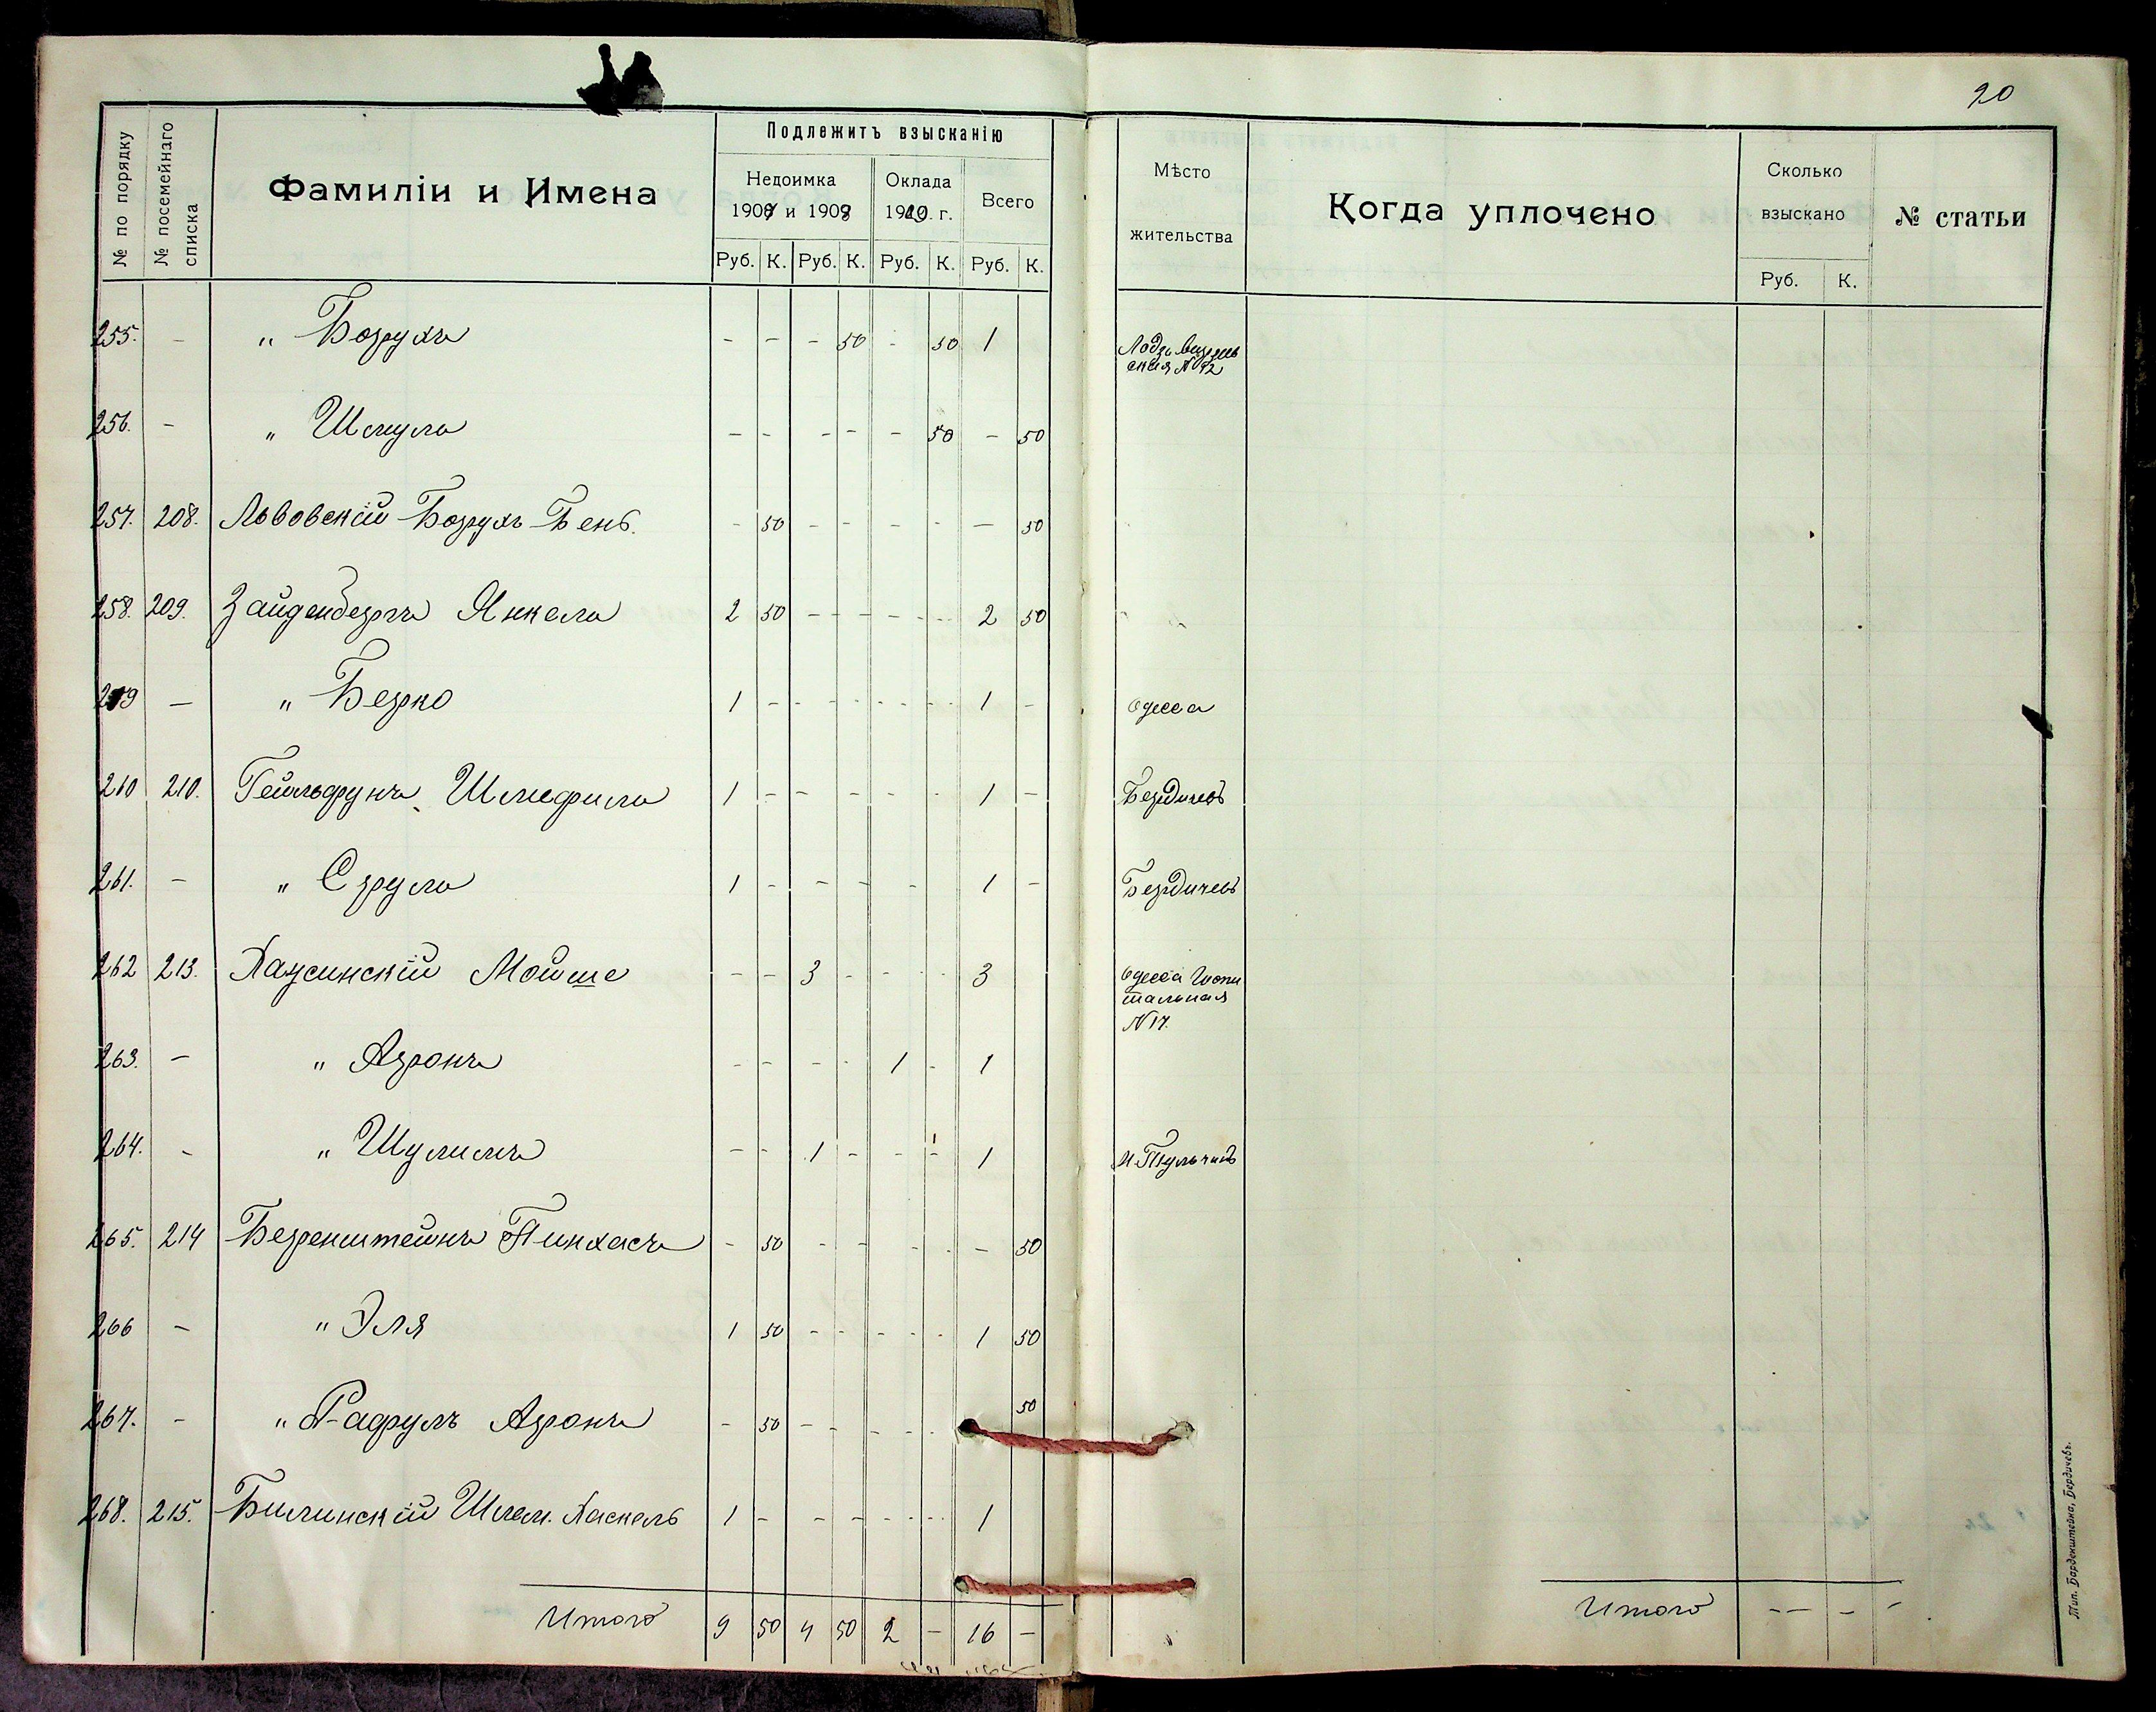 20
№ по порядку
№ посемейнаго списка
Фамиліи и Имена
Подлежитъ взысканію
Недоимка
1908 и 1908
Оклада
1910. г.
Всего
Руб. К. Руб. К. Руб. К. Руб. К.
Мѣсто
жительства
Когда уплочено
Сколько
взыскано
Руб. К.
№ статьи
255. - " Борухъ - - - 50 - 50 1 Лодзь
ская № 42
256. - " Шмуль - - - - - 50 - 50
257. 208. Львовскій Борухъ-Бенъ. - 50 - - - - - 50
258. 209. Зайденбергъ Янкель 2 50 - - - - 2 50
259 - " Берко 1 - - - - - 1 - Одесса
260 210. Гейльфунъ Шмефиль 1 - - - - - 1 - Бердичевъ
261. - " Сруль 1 - - - - 1 - Бердичевъ
262 213. Хаусинскій Мойше - - 3 - - - 3 Одесса Госпи
тальная
№ 17.
263. - " Аронъ - - - - 1 - 1
264. - " Шулимъ - - 1 - - - 1 м. Тульчинъ
265. 214 Беренштейнъ Пинхасъ - 50 - - - - - 50
266 - " Эля 1 50 - - - - 1 50
267. - " Рафулъ Аронъ - 50 - - - - 50
268. 215. Билинскій Шлем. Хаскель 1 - - - - - 1
Итого 9 50 4 50 2 - 16 -
Итого - - - -
Тип. Барденштейна, Бердичевъ.